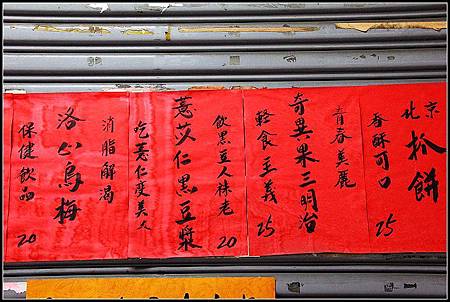 北京抓餅
香酥可口 25
青春美麗
奇異果三明治
輕食主義 25
飲黑豆人老 20
薏苡仁黑豆漿
吃薏仁變美人
消脂解渴
洛烏梅
保健飲品 20